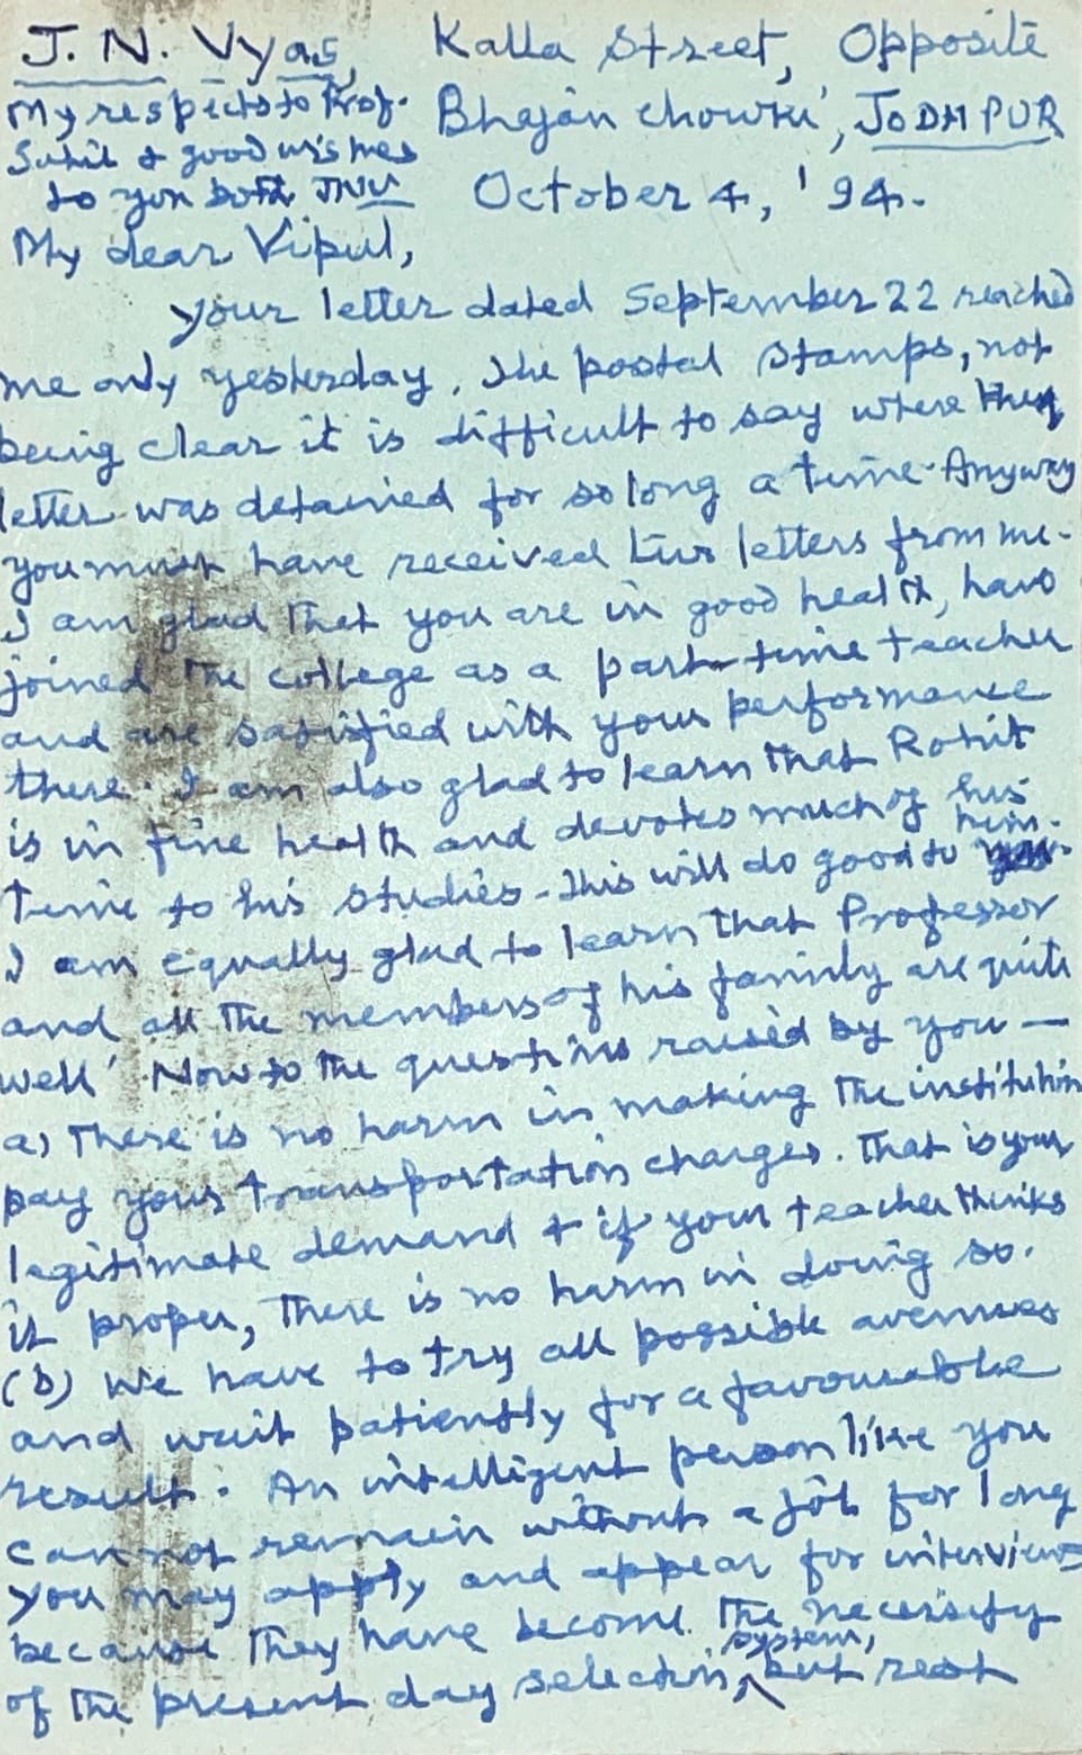 J. N. Vyas, Kalla Street, Opposite
My respects to Prof. Bhajan Chowki, JODHPUR
Suhil & good wishes
to you both JNV October 4, '94.
My dear Vipul,
Your letter dated September 22 reached
me only yesterday. The postal stamps, not
being clear it is difficult to say where the
letter was detained for so long a time. Anyway
you must have received two letters from me.
I am glad that you are in good health, have
joined the college as a part-time teacher
and are satisfied with your performance
there. I am also glad to learn that Rohit
is in fine health and devotes much of his
time to his studies - This will do good to him.
I am equally glad to learn that Professor
and all the members of his family are quite
well. Now to the questions raised by you —
a) There is no harm in making the institution
pay your transportation charges. That is your
legitimate demand & if your teacher thinks
it proper, there is no harm in doing so.
(b) We have to try all possible avenues
and wait patiently for a favourable
result. An intelligent person like you
can not remain without a job for long
you may apply and appear for interviews
because they have become the necessity
of the present day selection system, but rest